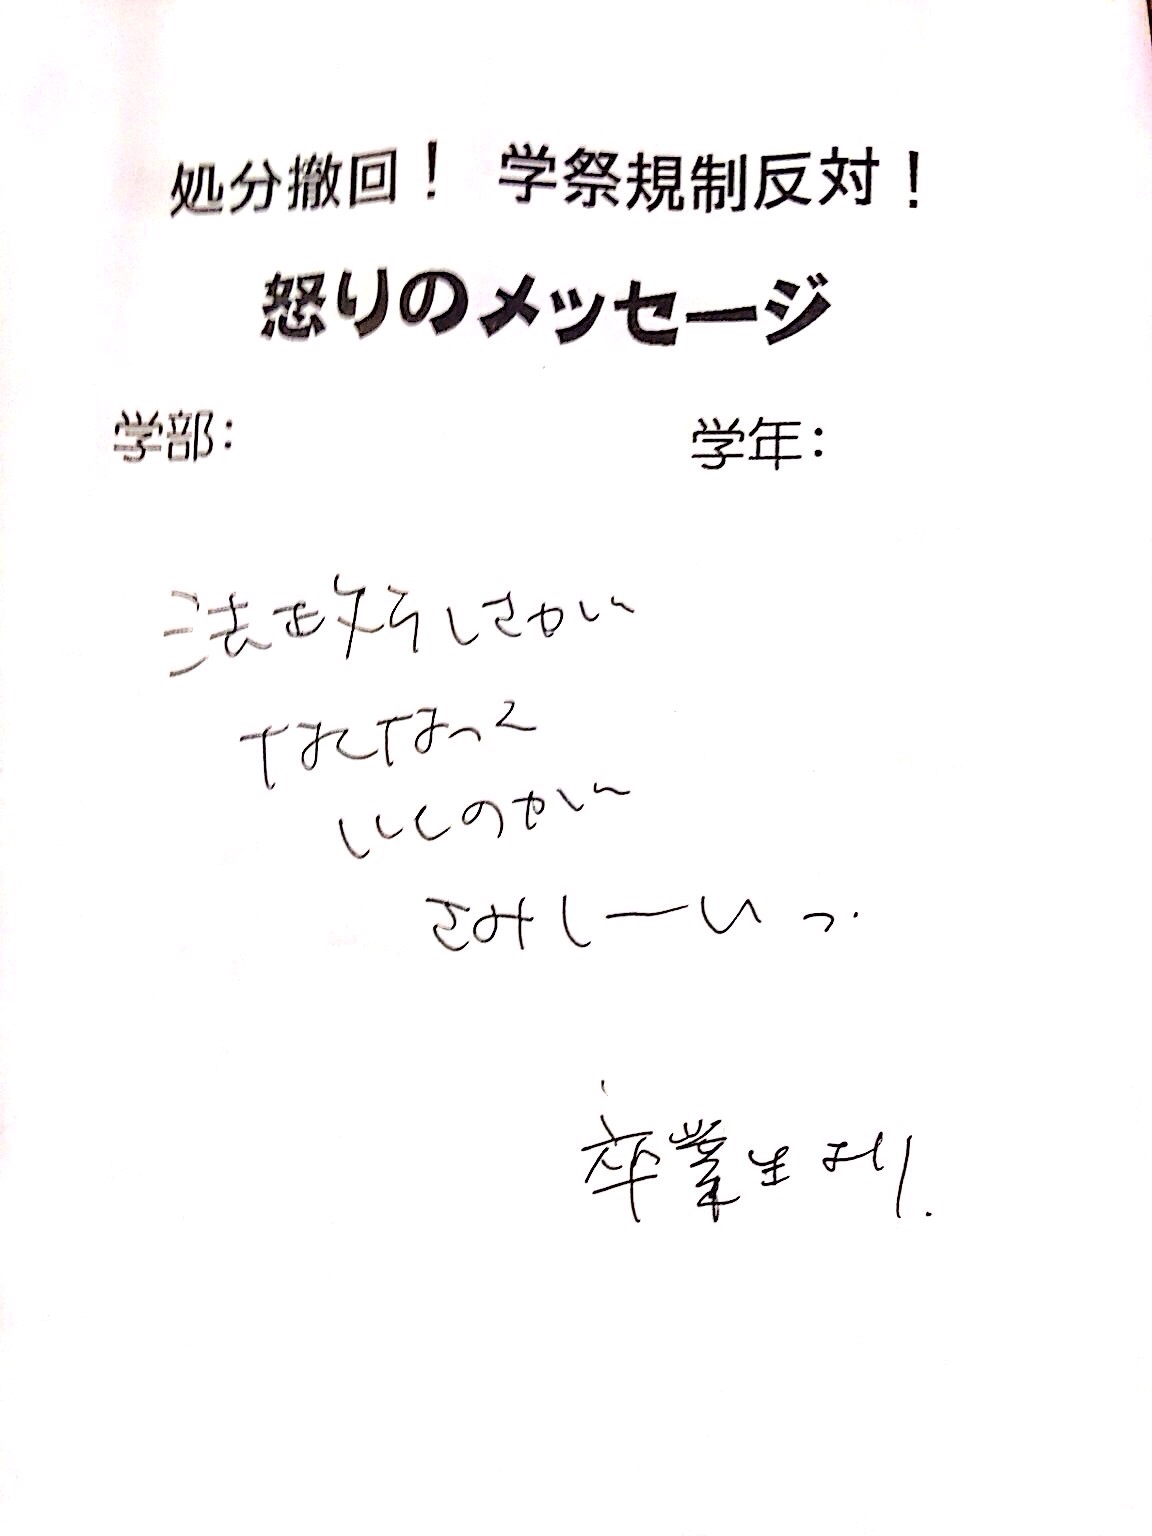 処分撤回！　学祭規制反対！
怒りのメッセージ
学部：
学年：
法政らしさが
なくなって
いくのが
さみしーいっ.
卒業生より.